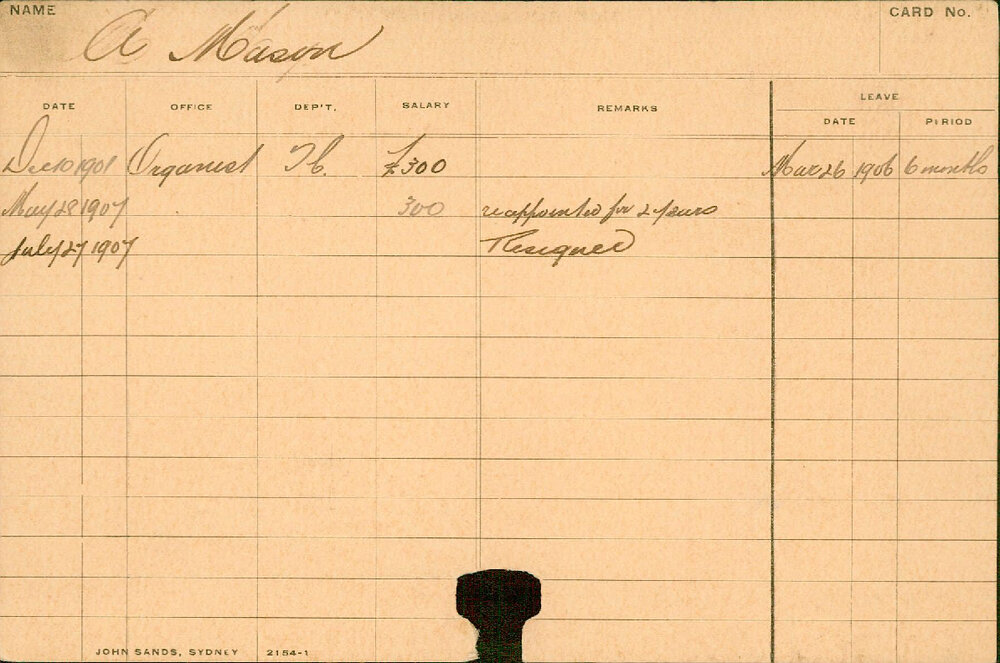 NAME
CARD No.
A Mason
DATE OFFICE DEP'T. SALARY REMARKS LEAVE
DATE PERIOD
Dec 10 1901 Organist T.C. £300 Mar 26 1906 6 months
May 28 1907 300 reappointed for 2 years
July 27 1907 Resigned
JOHN SANDS, SYDNEY 2154-1